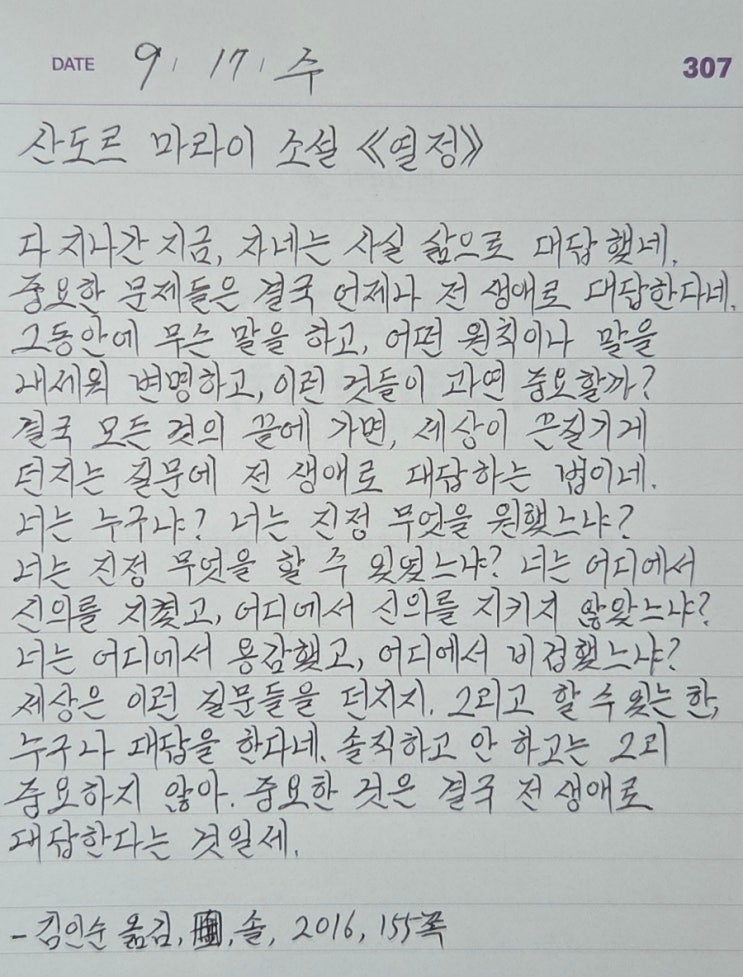 DATE 9. 17. 수 307
산도르 마라이 소설 《열정》
다 지나간 지금, 자네는 사실 삶으로 대답했네.
중요한 문제들은 결국 언제나 전 생애로 대답한다네.
그동안에 무슨 말을 하고, 어떤 원칙이나 말을
내세워 변명하고, 이런 것들이 과연 중요할까?
결국 모든 것의 끝에 가면, 세상이 끈질기게
던지는 질문에 전 생애로 대답하는 법이네.
너는 누구냐? 너는 진정 무엇을 원했느냐?
너는 진정 무엇을 할 수 있었느냐? 너는 어디에서
신의를 지켰고, 어디에서 신의를 지키지 않았느냐?
너는 어디에서 용감했고, 어디에서 비겁했느냐?
세상은 이런 질문들을 던지지. 그리고 할 수 있는 한,
누구나 대답을 한다네. 솔직하고 안 하고는 그리
중요하지 않아. 중요한 것은 결국 전 생애로
대답한다는 것일세.
- 김인순 옮김, 솔, 2016, 155쪽